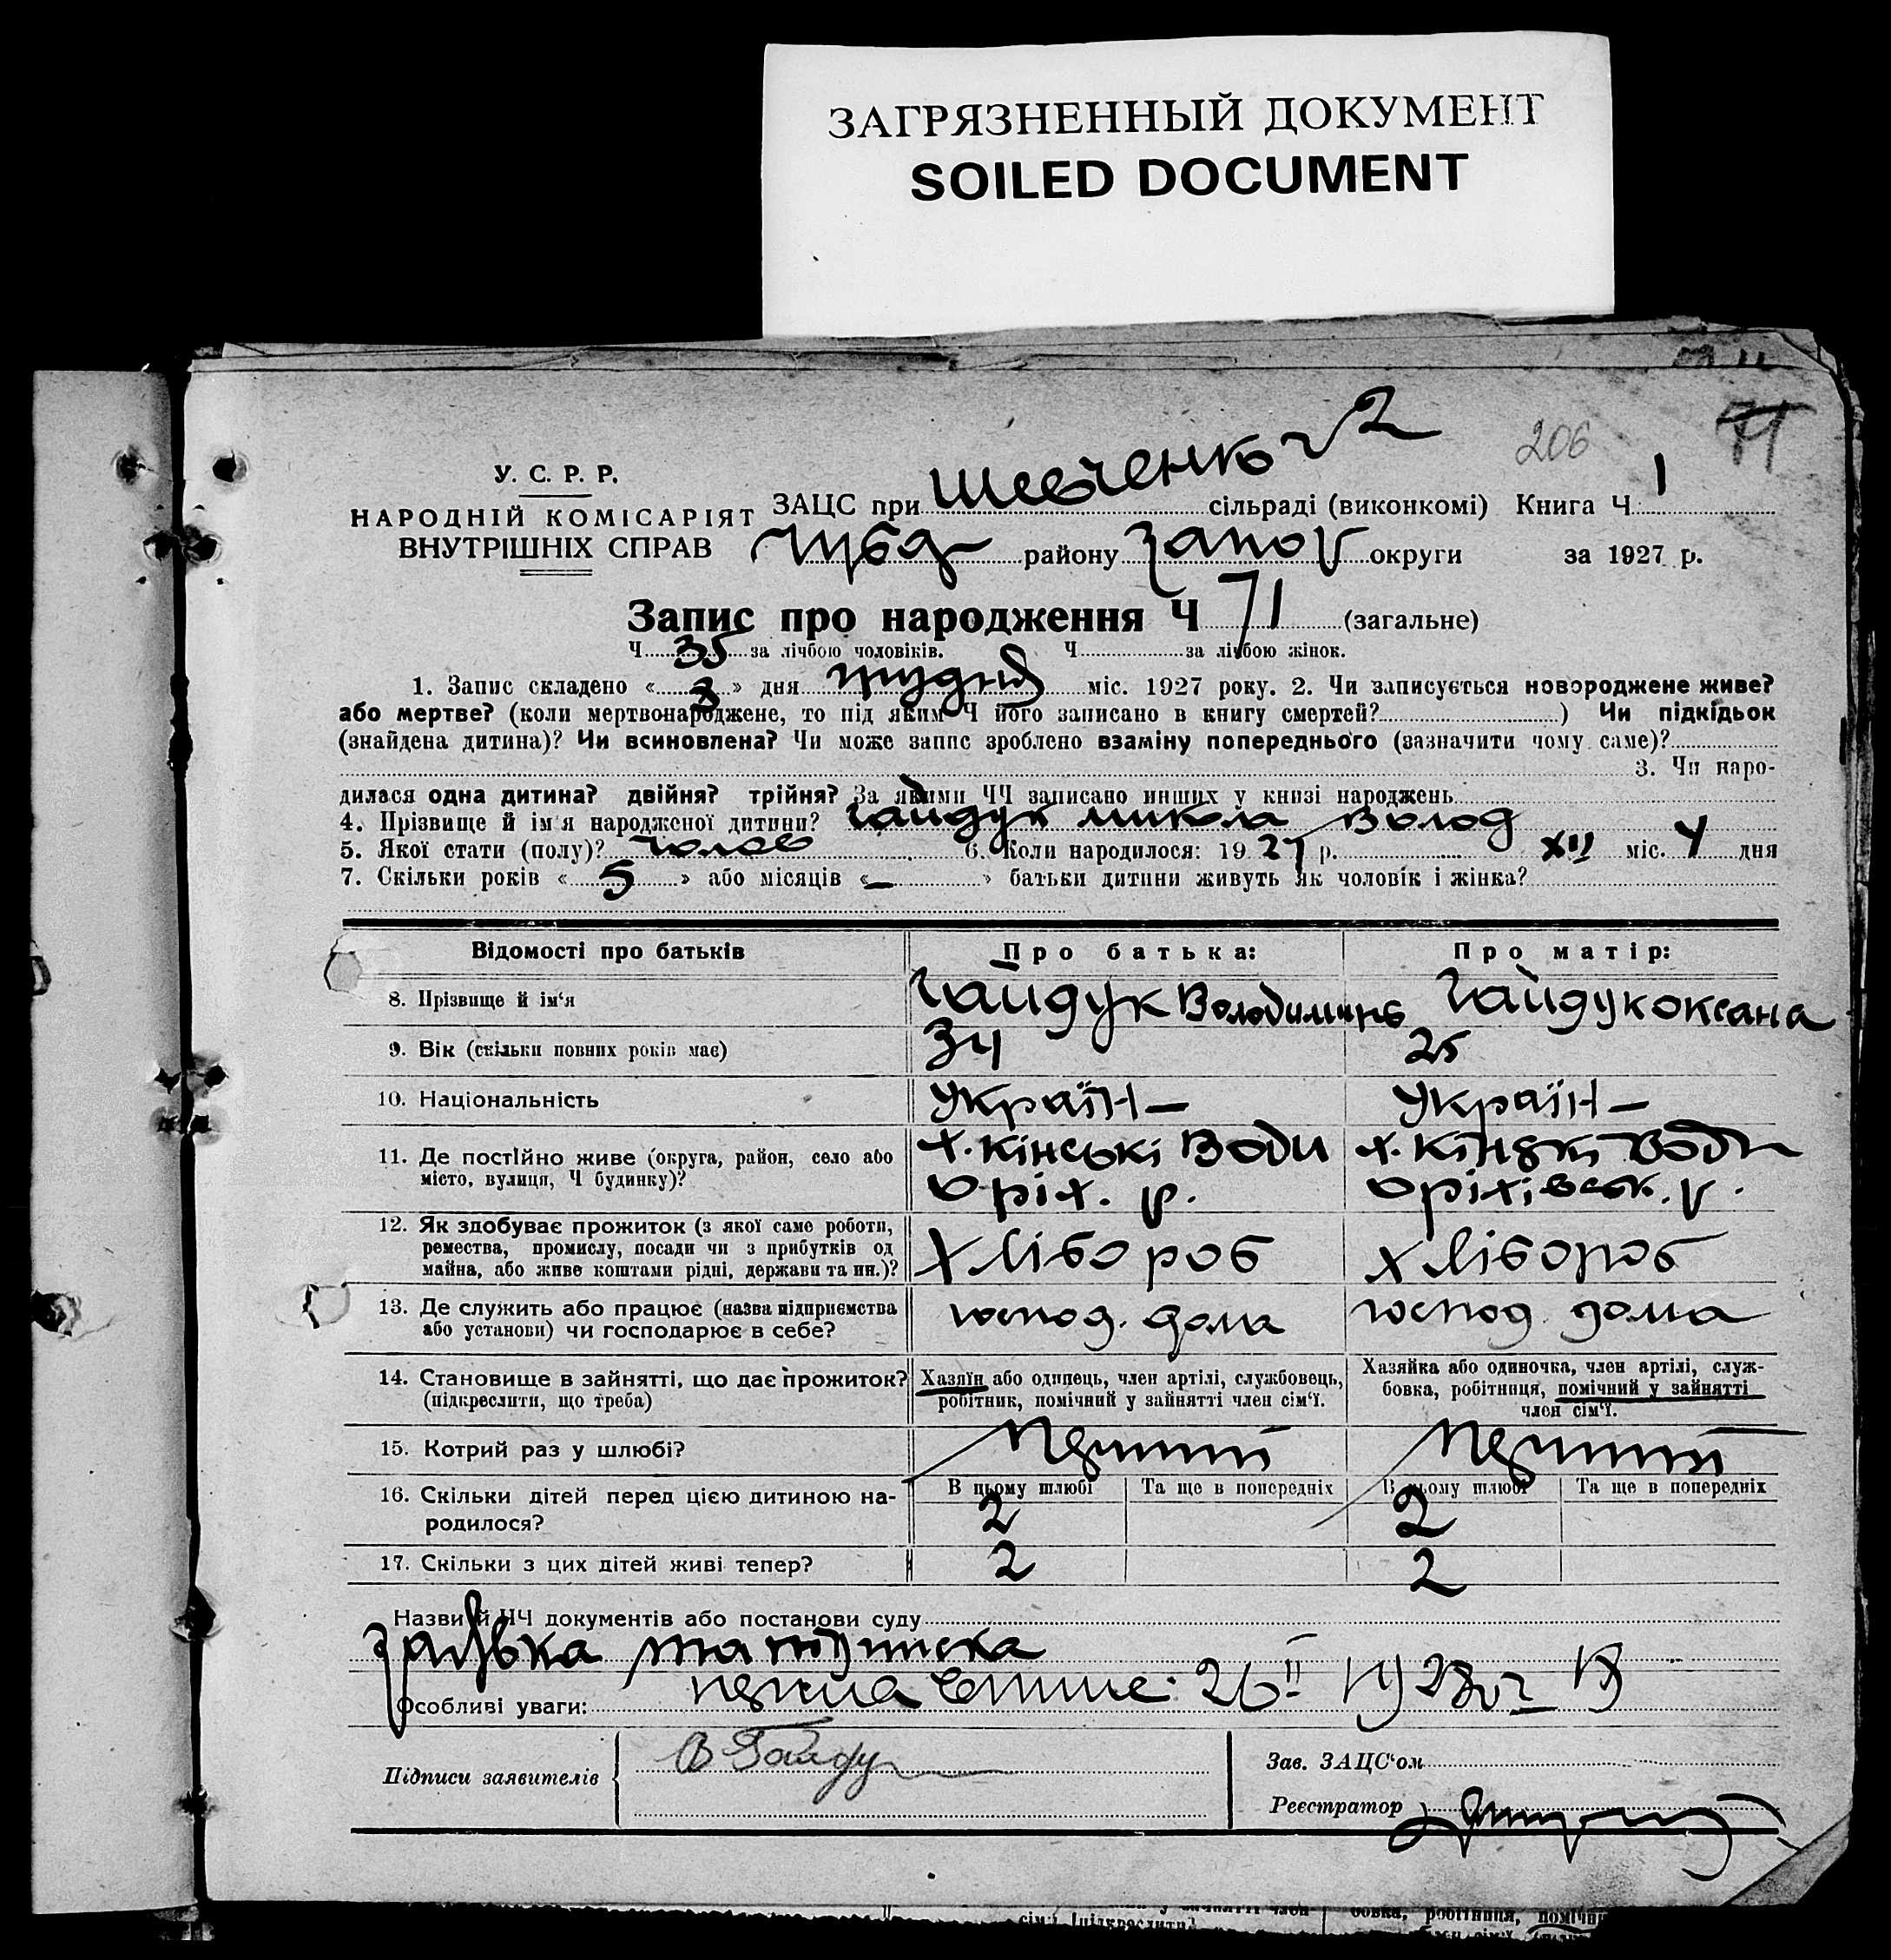 ЗАГРЯЗНЕННЫЙ ДОКУМЕНТ
SOILED DOCUMENT
206 71
У. С. Р. Р.
НАРОДНІЙ КОМІСАРІЯТ
ВНУТРІШНІХ СПРАВ
ЗАЦС при Шевченко №2 сільраді (виконкомі) Книга Ч. 1
району Запор округи за 1927 р.
Запис про народження Ч 71 (загальне)
Ч 35 за лічбою чоловіків. Ч за лічбою жінок.
1. Запис складено « 8 » дня грудня міс. 1927 року. 2. Чи записується новороджене живе?
або мертве? (коли мертвонароджене, то під яким Ч його записано в книгу смертей? ) Чи підкідьок
(знайдена дитина)? Чи всиновлена? Чи може запис зроблено взаміну попереднього (зазначити чому саме)?
3. Чи наро-
дилася одна дитина? двійня? трійня? За якими ЧЧ записано инших у книзі народжень
4. Прізвище й ім'я народженої дитини? Гайдук Микола Волод
5. Якої стати (полу)? чолов 6. Коли народилося: 1927 р. XII міс. 4 дня
7. Скільки років « 5 » або місяців « — » батьки дитини живуть як чоловік і жінка?
Відомості про батьків Про батька: Про матір:
8. Прізвище й ім'я Гайдук Володимир Гайдук Оксана
9. Вік (скільки повних років має) 34 25
10. Національність Україн— Україн—
11. Де постійно живе (округа, район, село або
місто, вулиця, Ч будинку)?
х. Кінські Води
Оріх. р.
х. Кінські Води
Оріхівськ. р.
12. Як здобуває прожиток (з якої саме роботи,
ремества, промислу, посади чи з прибутків од
майна, або живе коштами рідні, держави та ин.)?
хлібороб хлібороб
13. Де служить або працює (назва підприємства
або установи) чи господарює в себе?
господ. дома господ. дома
14. Становище в зайнятті, що дає прожиток?
(підкреслити, що треба)
Хазяїн або одинець, член артілі, службовець,
робітник, помічний у зайнятті член сім'ї.
Хазяйка або одиночка, член артілі, служ-
бовка, робітниця, помічний у зайнятті
член сім'ї.
15. Котрий раз у шлюбі? перший перший
16. Скільки дітей перед цією дитиною на-
родилося?
В цьому шлюбі Та ще в попередніх В цьому шлюбі Та ще в попередніх
2 2
17. Скільки з цих дітей живі тепер? 2 2
Назви й ЧЧ документів або постанови суду
Особливі уваги: 26 II 1923
Підписи заявителів В Гайдук
Зав. ЗАЦС'ом
Реєстратор